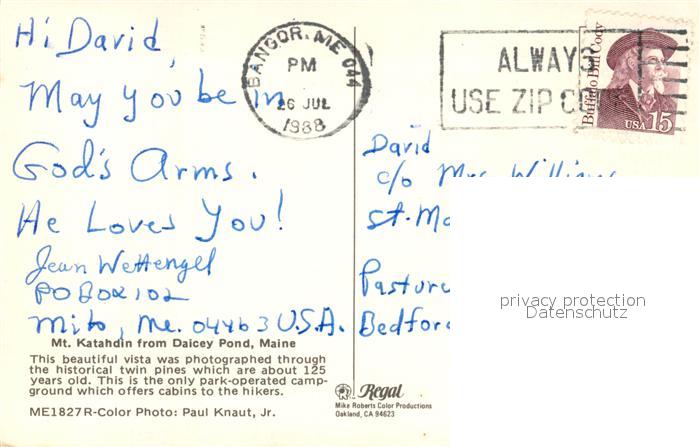 Hi David,
May you be in
God's Arms.
He Loves You!
Jean Wettengel
PO Box 102
Milo, Me. 04463 U.S.A.
Mt. Katahdin from Daicey Pond, Maine
This beautiful vista was photographed through
the historical twin pines which are about 125
years old. This is the only park-operated camp-
ground which offers cabins to the hikers.
ME1827R-Color Photo: Paul Knaut, Jr.
BANGOR, ME 044
PM
26 JUL
1988
ALWAYS
USE ZIP CO
Buffalo Bill Cody
USA 15
David
c/o Mrs
St.
Pasture
Bedford
privacy protection
Datenschutz
Regal
Mike Roberts Color Productions
Oakland, CA 94623